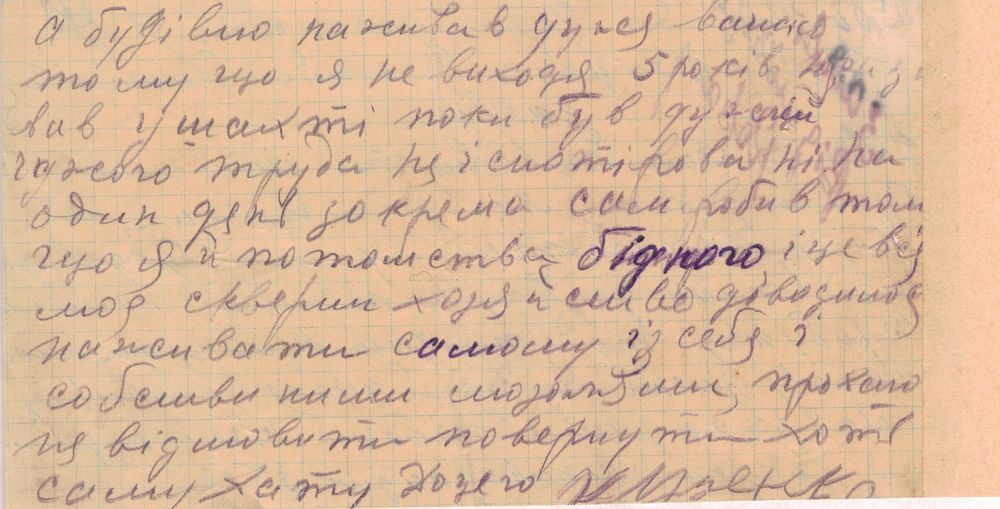 а будівлю наживав дуже важко
тому що я не виходя 5 років
вав у шахті поки був дужчий
чужого труда не існотірова ні на
один день зокрема сам робив том
що я й потомства бідного, і це вся
моя скверни хозяйство доводилося
наживати самому із себя і
собствиними мозолями, прохаю
не відмовити повернути хотя
саму хату